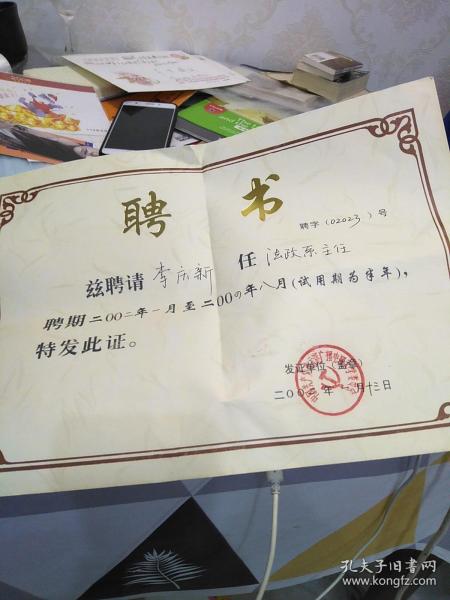 聘 书
聘字（02023）号
兹聘请 李庆新 任 法政系主任
聘期二00二年一月至二00四年八月(试用期为半年)，
特发此证。
发证单位（盖章）
二00二年一月十三日
孔夫子旧书网
www.kongfz.com